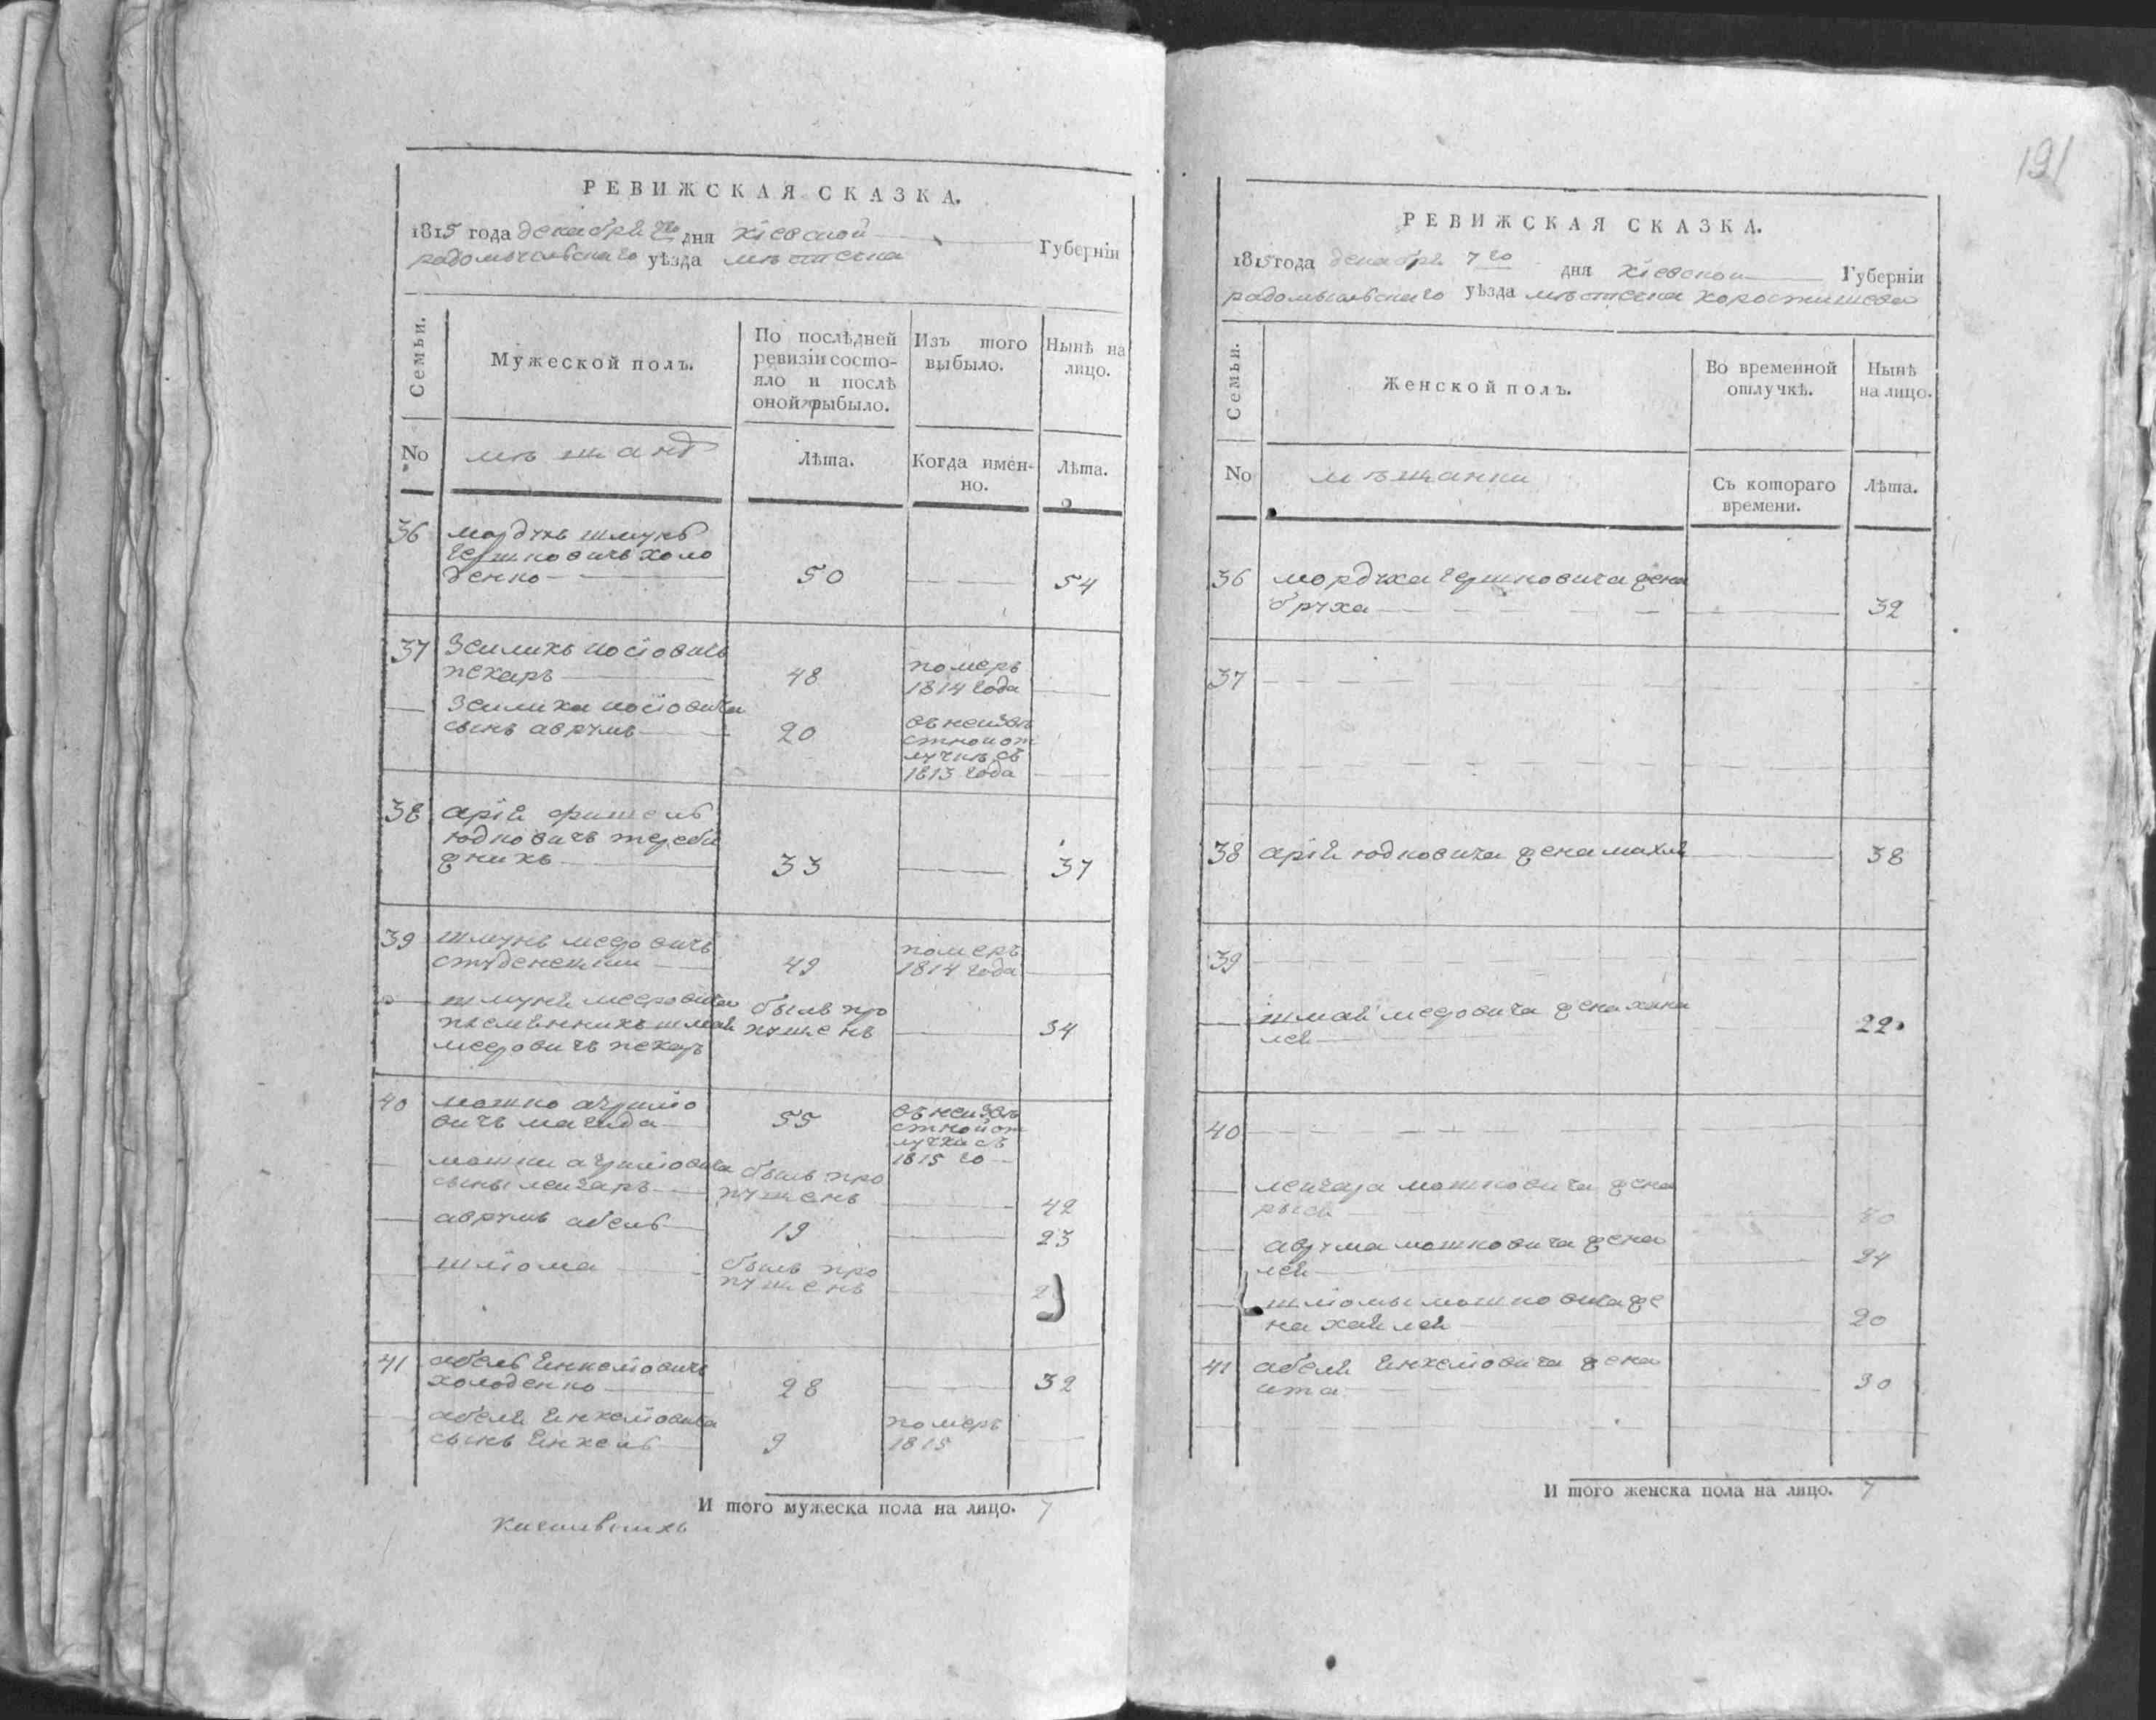 РЕВИЖСКАЯ СКАЗКА.
1815 года декабря 7го дня Кіевской Губерніи
радомысльскаго уѣзда мѣстечка
Семьи.
Мужеской полъ.
По послѣдней
ревизіи состо-
яло и послѣ
оной прыбыло.
Изъ того
выбыло.
Нынѣ на
лицо.
No
мѣщанъ
Лѣта.
Когда имен-
но.
Лѣта.
36 мордухъ шмулъ
Гершковичъ холо
денко 50 54
37 Зелихъ иосіовичъ
пекаръ 48 померъ
1814 года
Зелиха иосіовича
сынъ аврумъ 20 въ неизвѣ
стной от
лучкѣ съ
1813 года
38 арій фишель
юдковичъ тереби
жникъ 33 37
39 шмулъ мееровичъ
студенецкии 49 померъ
1814 года
шмуля мееровича
племѣнникъ шмая
мееровичъ пекаръ былъ про
пущенъ 34
40 мошко
вичъ магида 55 въ неизвѣ
стной от
лучки съ
1815 го
мошки
сыны лейзаръ былъ про
пущенъ 42
аврумъ абель 19 23
шліома былъ про
пущенъ
41 абель Янкеліовичъ
холоденко 28 32
абеля Янкеліовича
сынъ Янкель 9 померъ
1815
И того мужеска пола на лицо. 7
191
РЕВИЖСКАЯ СКАЗКА.
1815 года декабря 7го дня Кіевской Губерніи
радомысльскаго уѣзда мѣстечка Коростишева
Семьи.
Женской полъ.
Во временной
отлучкѣ.
Нынѣ
на лицо.
No
мѣщанки
Съ котораго
времени.
Лѣта.
36 мордуха Гершковича жена
бруха 32
37
38 арія юдковича жена махля 38
39
шмая мееровича жена хана
лея 22
40
лейзара мошковича жена
рыся 40
аврума мошковича жена
лея 24
шліомы мошковича же
на хая лея 20
41 абеля Янкеліовича жена
ита 30
И того женска пола на лицо. 7